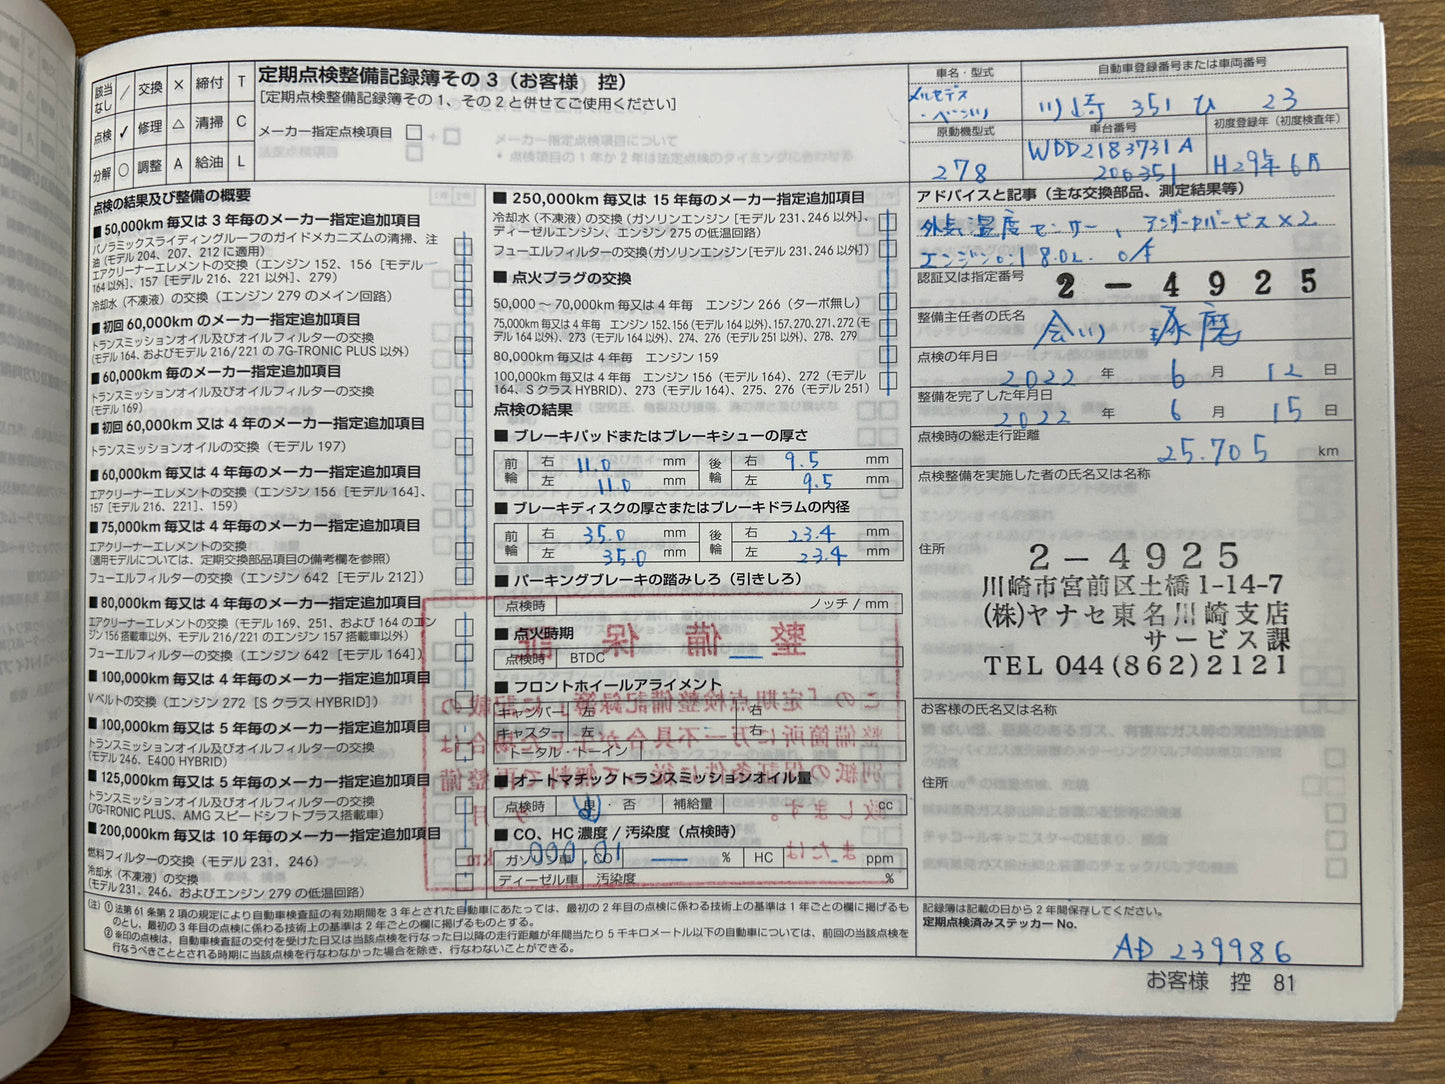 該当なし ／ 交換 × 締付 T
点検 ✓ 修理 △ 清掃 C
分解 ○ 調整 A 給油 L
定期点検整備記録簿その3（お客様 控）
［定期点検整備記録簿その1、その2と併せてご使用ください］
メーカー指定点検項目 □
点検の結果及び整備の概要
■50,000km 毎又は 3 年毎のメーカー指定追加項目
パノラミックスライディングルーフのガイドメカニズムの清掃、注
油（モデル 204、207、212 に適用）
エアクリーナーエレメントの交換（エンジン 152、156［モデル
164 以外］、157［モデル 216、221 以外］、279）
冷却水（不凍液）の交換（エンジン 279 のメイン回路）
■初回 60,000km のメーカー指定追加項目
トランスミッションオイル及びオイルフィルターの交換
（モデル 164、およびモデル 216/221 の 7G-TRONIC PLUS 以外）
■60,000km 毎のメーカー指定追加項目
トランスミッションオイル及びオイルフィルターの交換
（モデル 169）
■初回 60,000km 又は 4 年毎のメーカー指定追加項目
トランスミッションオイルの交換（モデル 197）
■60,000km 毎又は 4 年毎のメーカー指定追加項目
エアクリーナーエレメントの交換（エンジン 156［モデル 164］、
157［モデル 216、221］、159）
■75,000km 毎又は 4 年毎のメーカー指定追加項目
エアクリーナーエレメントの交換
（適用モデルについては、定期交換部品項目の備考欄を参照）
フューエルフィルターの交換（エンジン 642［モデル 212］）
■80,000km 毎又は 4 年毎のメーカー指定追加項目
エアクリーナーエレメントの交換（モデル 169、251、および 164 のエン
ジン 156 搭載車以外、モデル 216/221 のエンジン 157 搭載車以外）
フューエルフィルターの交換（エンジン 642［モデル 164］）
■100,000km 毎又は 4 年毎のメーカー指定追加項目
Vベルトの交換（エンジン 272［S クラス HYBRID］）
■100,000km 毎又は 5 年毎のメーカー指定追加項目
トランスミッションオイル及びオイルフィルターの交換
（モデル 246、E400 HYBRID）
■125,000km 毎又は 5 年毎のメーカー指定追加項目
トランスミッションオイル及びオイルフィルターの交換
（7G-TRONIC PLUS、AMG スピードシフトプラス搭載車）
■200,000km 毎又は 10 年毎のメーカー指定追加項目
燃料フィルターの交換（モデル 231、246）
冷却水（不凍液）の交換
（モデル 231、246、およびエンジン 279 の低温回路）
■ 250,000km 毎又は 15 年毎のメーカー指定追加項目
冷却水（不凍液）の交換（ガソリンエンジン［モデル 231、246 以外］、
ディーゼルエンジン、エンジン 275 の低温回路）
フューエルフィルターの交換（ガソリンエンジン［モデル 231、246 以外］）
■ 点火プラグの交換
50,000 ～ 70,000km 毎又は 4 年毎 エンジン 266（ターボ無し）
75,000km 毎又は 4 年毎 エンジン 152、156（モデル 164 以外）、157、270、271、272（モ
デル 164 以外）、273（モデル 164 以外）、274、276（モデル 251 以外）、278、279
80,000km 毎又は 4 年毎 エンジン 159
100,000km 毎又は 4 年毎 エンジン 156（モデル 164）、272（モデル
164、S クラス HYBRID）、273（モデル 164）、275、276（モデル 251）
点検の結果
■ ブレーキパッドまたはブレーキシューの厚さ
前輪 右 11.0 mm 後輪 右 9.5 mm
左 11.0 mm 左 9.5 mm
■ ブレーキディスクの厚さまたはブレーキドラムの内径
前輪 右 35.0 mm 後輪 右 23.4 mm
左 35.0 mm 左 23.4 mm
■ パーキングブレーキの踏みしろ（引きしろ）
点検時 ノッチ / mm
■ 点火時期
点検時 BTDC
■ フロントホイールアライメント
キャンバー 左 右
キャスター 左 右
トータル・トーイン
■ オートマチックトランスミッションオイル量
点検時 良・否 補給量 cc
■ CO、HC 濃度 / 汚染度（点検時）
ガソリン車 CO % HC ppm
ディーゼル車 汚染度 %
車名・型式
メルセデス
・ベンツ
自動車登録番号または車両番号
川崎 351 ひ 23
原動機型式
278
車台番号
WDD2183731A
206351
初度登録年（初度検査年）
H29年6月
アドバイスと記事（主な交換部品、測定結果等）
外気温度センサー、アンダーカバービス×2
エンジンOil 8.0L
認証又は指定番号
2-4925
整備主任者の氏名
点検の年月日
2022 年 6 月 12 日
整備を完了した年月日
2022 年 6 月 15 日
点検時の総走行距離
25.705 km
点検整備を実施した者の氏名又は名称
住所
2-4925
川崎市宮前区土橋1-14-7
(株)ヤナセ東名川崎支店
サービス課
TEL 044(862)2121
お客様の氏名又は名称
住所
（注）①法第 61 条第 2 項の規定により自動車検査証の有効期間を 3 年とされた自動車にあたっては、最初の 2 年目の点検に係わる技術上の基準は 1 年ごとの欄に掲げるも
のとし、最初の 3 年目の点検に係わる技術上の基準は 2 年ごとの欄に掲げるものとする。
②※印の点検は、自動車検査証の交付を受けた日又は当該点検を行なった日以降の走行距離が年間当たり 5 千キロメートル以下の自動車については、前回の当該点検を
行なうべきこととされる時期に当該点検を行なわなかった場合を除き、行なわないことができる。
記録簿は記載の日から 2 年間保存してください。
定期点検済みステッカー No.
AD 239986
お客様 控 81